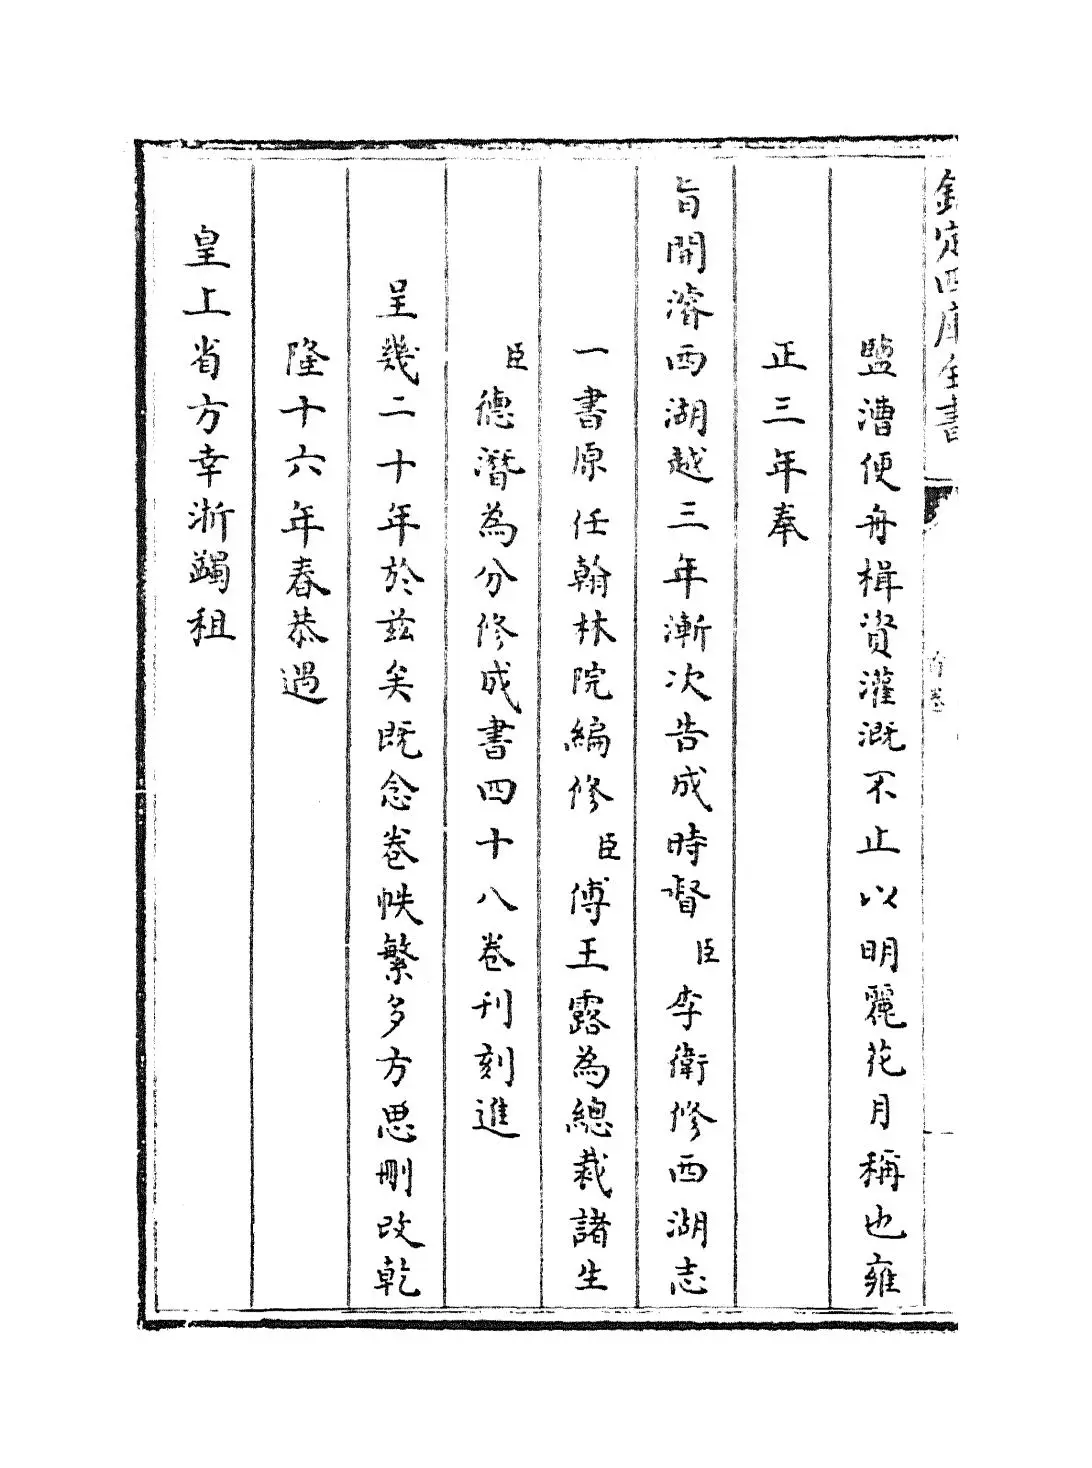 欽定四庫全書
首卷
鹽漕便舟楫資灌溉不止以明麗花月稱也雍
正三年奉
旨開濬西湖越三年漸次告成時督臣李衛修西湖志
一書原任翰林院編修臣傅王露為總裁諸生
臣德潛為分修成書四十八卷刊刻進
呈幾二十年於茲矣既念卷帙繁多方思刪改乾
隆十六年春恭遇
皇上省方幸浙蠲租